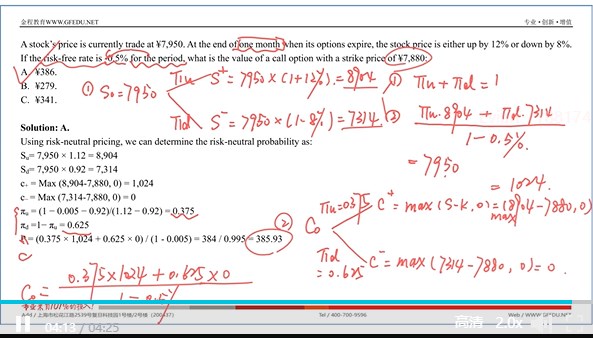 金程教育WWW.GFEDU.NET
专业·创新·增值
A stock's price is currently trade at ¥7,950. At the end of one month when its options expire, the stock price is either up by 12% or down by 8%.
If the risk-free rate is -0.5% for the period, what is the value of a call option with a strike price of ¥7,880:
A. ¥386.
B. ¥279.
C. ¥341.
① S₀=7950
πu S⁺ = 7950×(1+12%) = 8904
πd S⁻ = 7950×(1-8%) = 7314
① πu+πd=1
② πu·8904 + πd·7314
1-0.5%
= 7950
Solution: A.
Using risk-neutral pricing, we can determine the risk-neutral probability as:
Su= 7,950 × 1.12 = 8,904
Sd= 7,950 × 0.92 = 7,314
c₊ = Max (8,904-7,880, 0) = 1,024
c₋ = Max (7,314-7,880, 0) = 0
πu = (1 − 0.005 − 0.92)/(1.12 − 0.92) = 0.375
πd =1− πu = 0.625
= (0.375 × 1,024 + 0.625 × 0) / (1 - 0.005) = 384 / 0.995 = 385.93
②
C₀
πu=0.375 C⁺ = max(S-K,0)=(8904-7880,0)
max
= 1024.
πd
=0.625
C⁻ = max(7314-7880, 0)=0.
C₀ = 0.375×1024 + 0.625×0
1-0.5%
Add / 上海市松花江路2539号复旦科技园1号楼/2号楼 (200437)
Tel / 400-700-9596
Web / WWW.GFEDU.NET
04:13 / 04:25
高清
2.0x